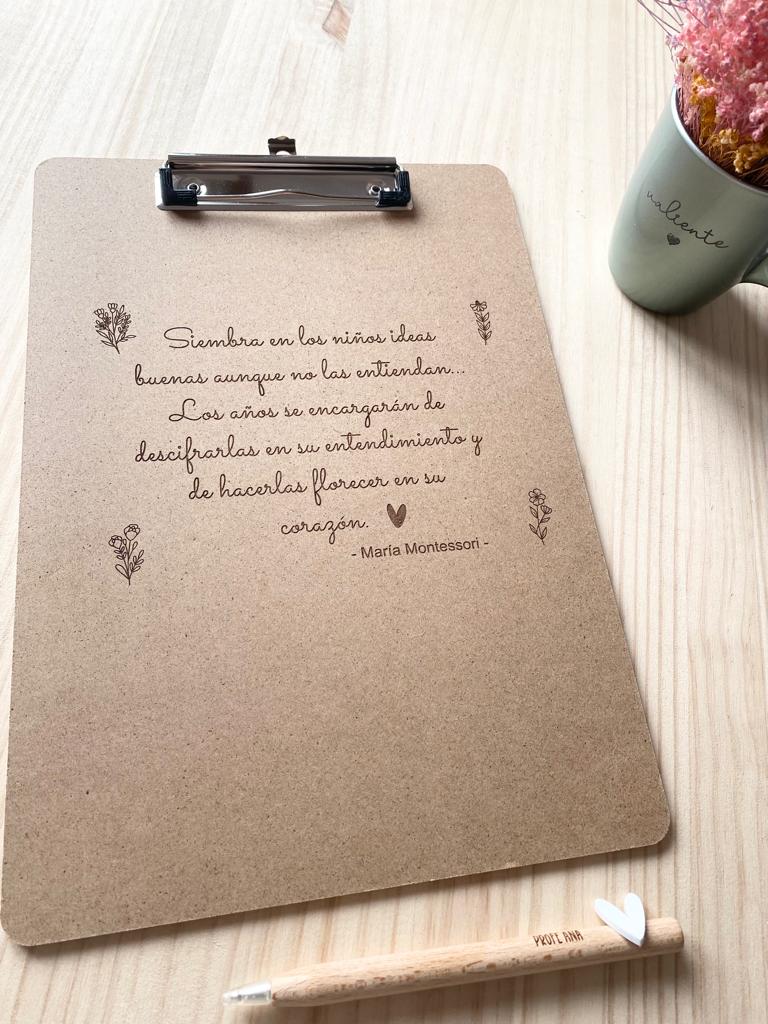 valiente
Siembra en los niños ideas
buenas aunque no las entiendan...
Los años se encargarán de
descifrarlas en su entendimiento y
de hacerlas florecer en su
corazón.
- María Montessori -
PROFE ANA